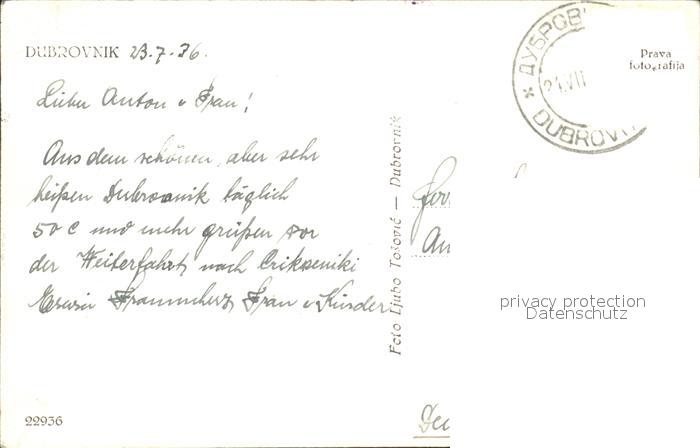 DUBROVNIK 23.7.36.
Lieber Anton u Frau!
Aus dem schönen, aber sehr
heißen Dubrovnik täglich
50 C und mehr grüßen vor
der Weiterfahrt nach Crikveniki
Erwin Frau u Kinder
22936
Foto Ljubo Tošović — Dubrovnik
ДУБРОВ
21.VII
DUBROVN
Prava
fotografija
An
privacy protection
Datenschutz